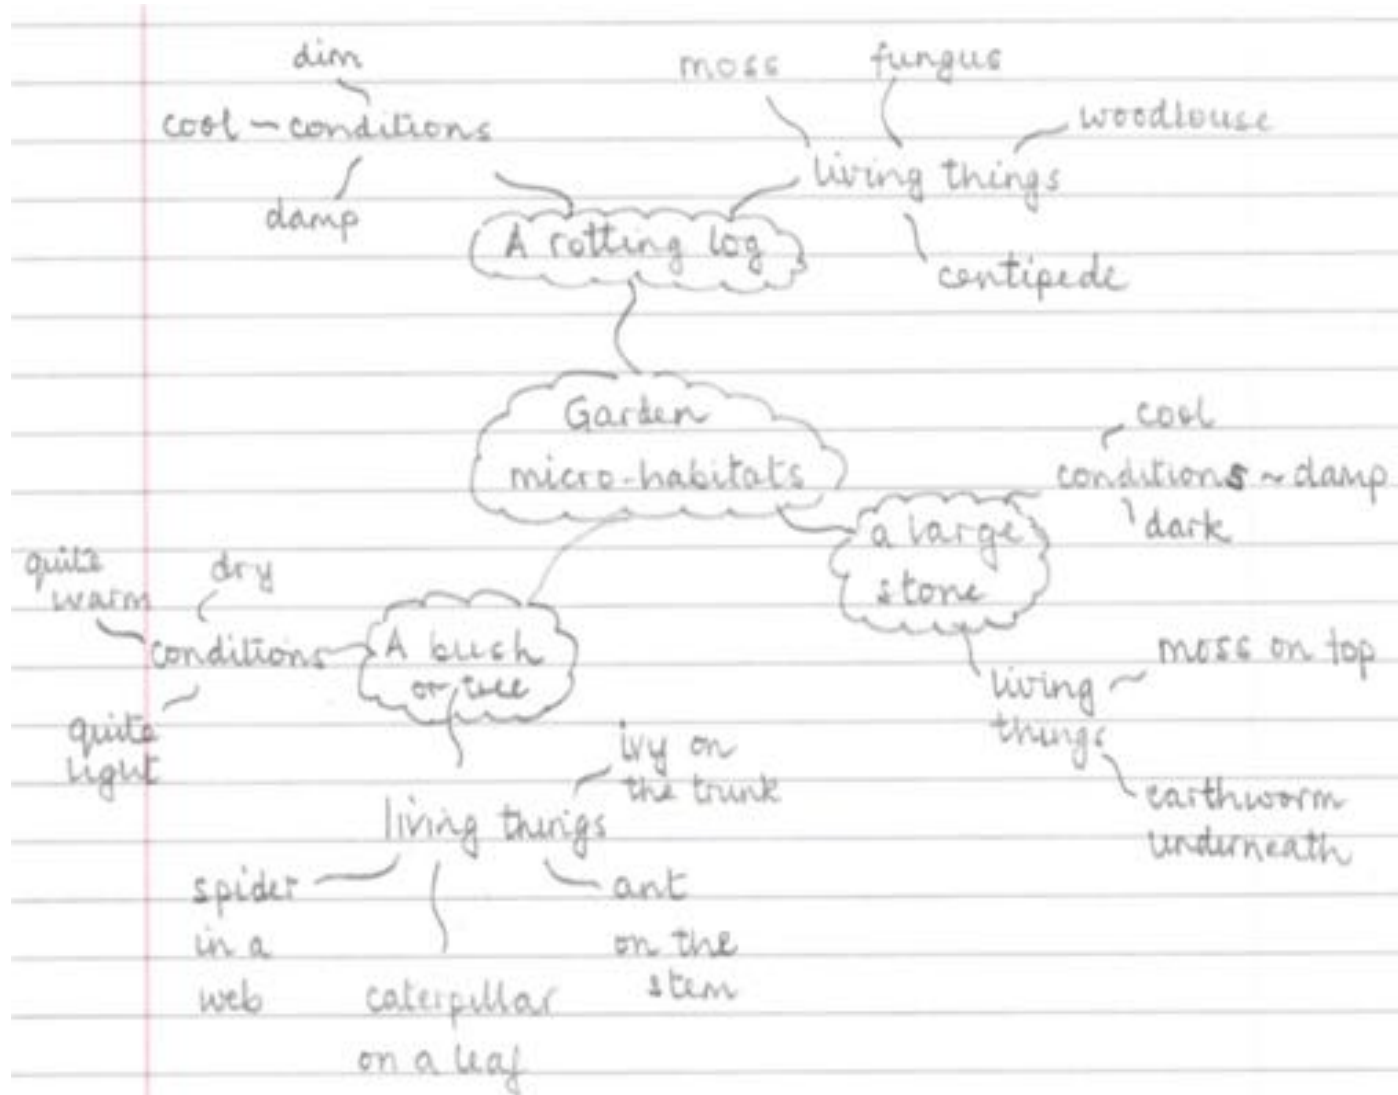 dim
cool – conditions
damp
moss
fungus
woodlouse
living things
centipede
A rotting log
Garden
micro-habitats
cool
conditions ~ damp
dark
a large
stone
moss on top
living
things
earthworm
underneath
quite
warm
dry
conditions
quite
light
A bush
or tree
ivy on
the trunk
living things
spider
in a
web
caterpillar
on a leaf
ant
on the
stem